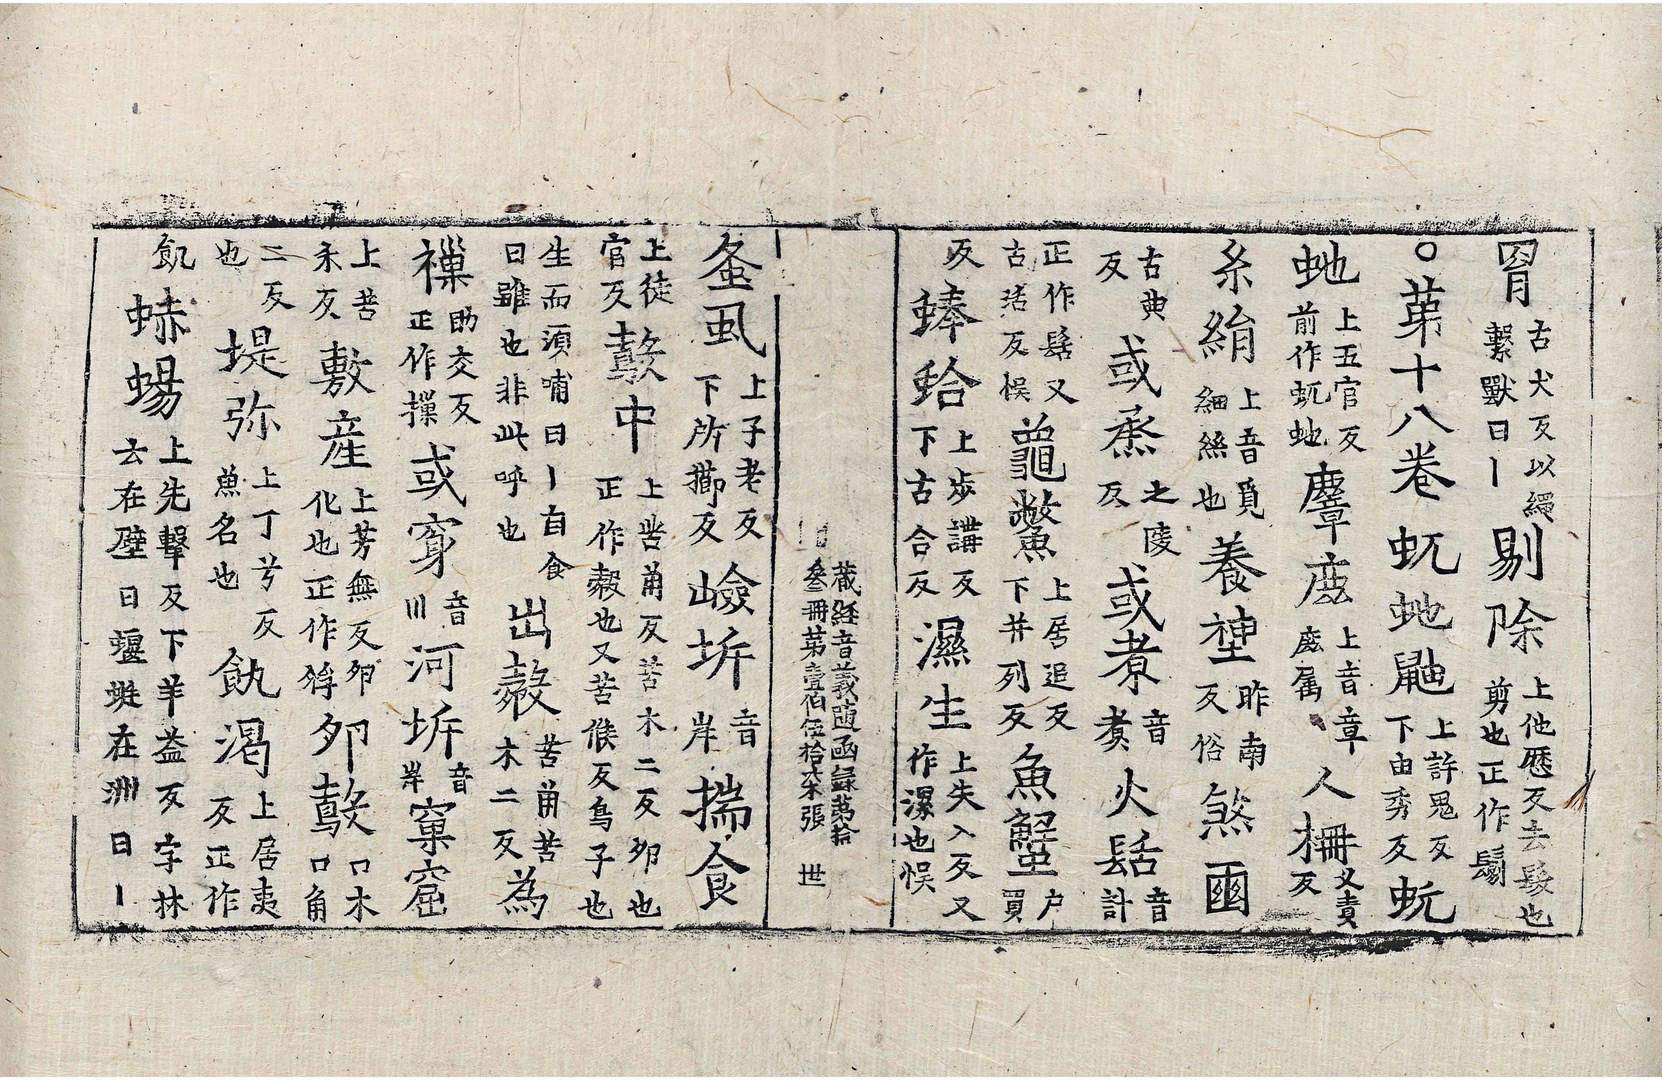 罥古犬反以繩繫獸曰丨剔除上他歷反去髮也剪也正作鬄
○第十八卷虺虵鼬上許鬼反下由秀反蚖
虵上五官反前作蚖虵麞𪊨上音章𪊨属人柵叉責反
糸絹上音覓細絲也養𧙥昨南反俗煞𡇙
古典反或烝之陵反或煮音煑火䯏音計
正作髻又古活反悮龜鱉上居追反下并列反魚蟹户買
反蜯蛤上步講反下古合反濕生上失入反又作漯也悮
藏經音義隨函録第拾
叁冊第壹伯伍拾柒張 世
蚤虱上子老反下所擳反嶮坼音岸揣食
上徒官反㲉中上苦角反苦木二反卵也正作㲉也又苦候反鳥子也
生而須哺曰丨自食曰雖也非此呼也出㲉苦角苦木二反為
樔助交反正作摷或穿音川河坼音岸窠窟
上苦禾反敷産上芳無反卵化也正作孵卵㲉口木口角
二反也堤弥上丁兮反魚名也飢渴上居夷反正作
飢蜥蜴上先擊反下羊益反字林云在壁曰蝘蜓在洲曰丨